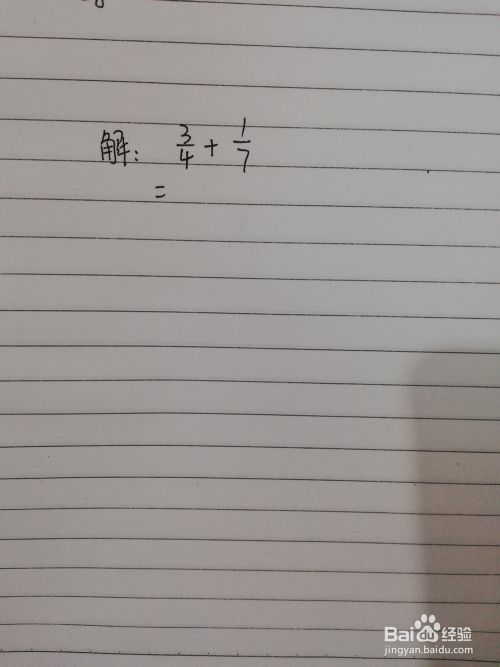 解: 3/4 + 1/7
=
Baidu经验
jingyan.baidu.com